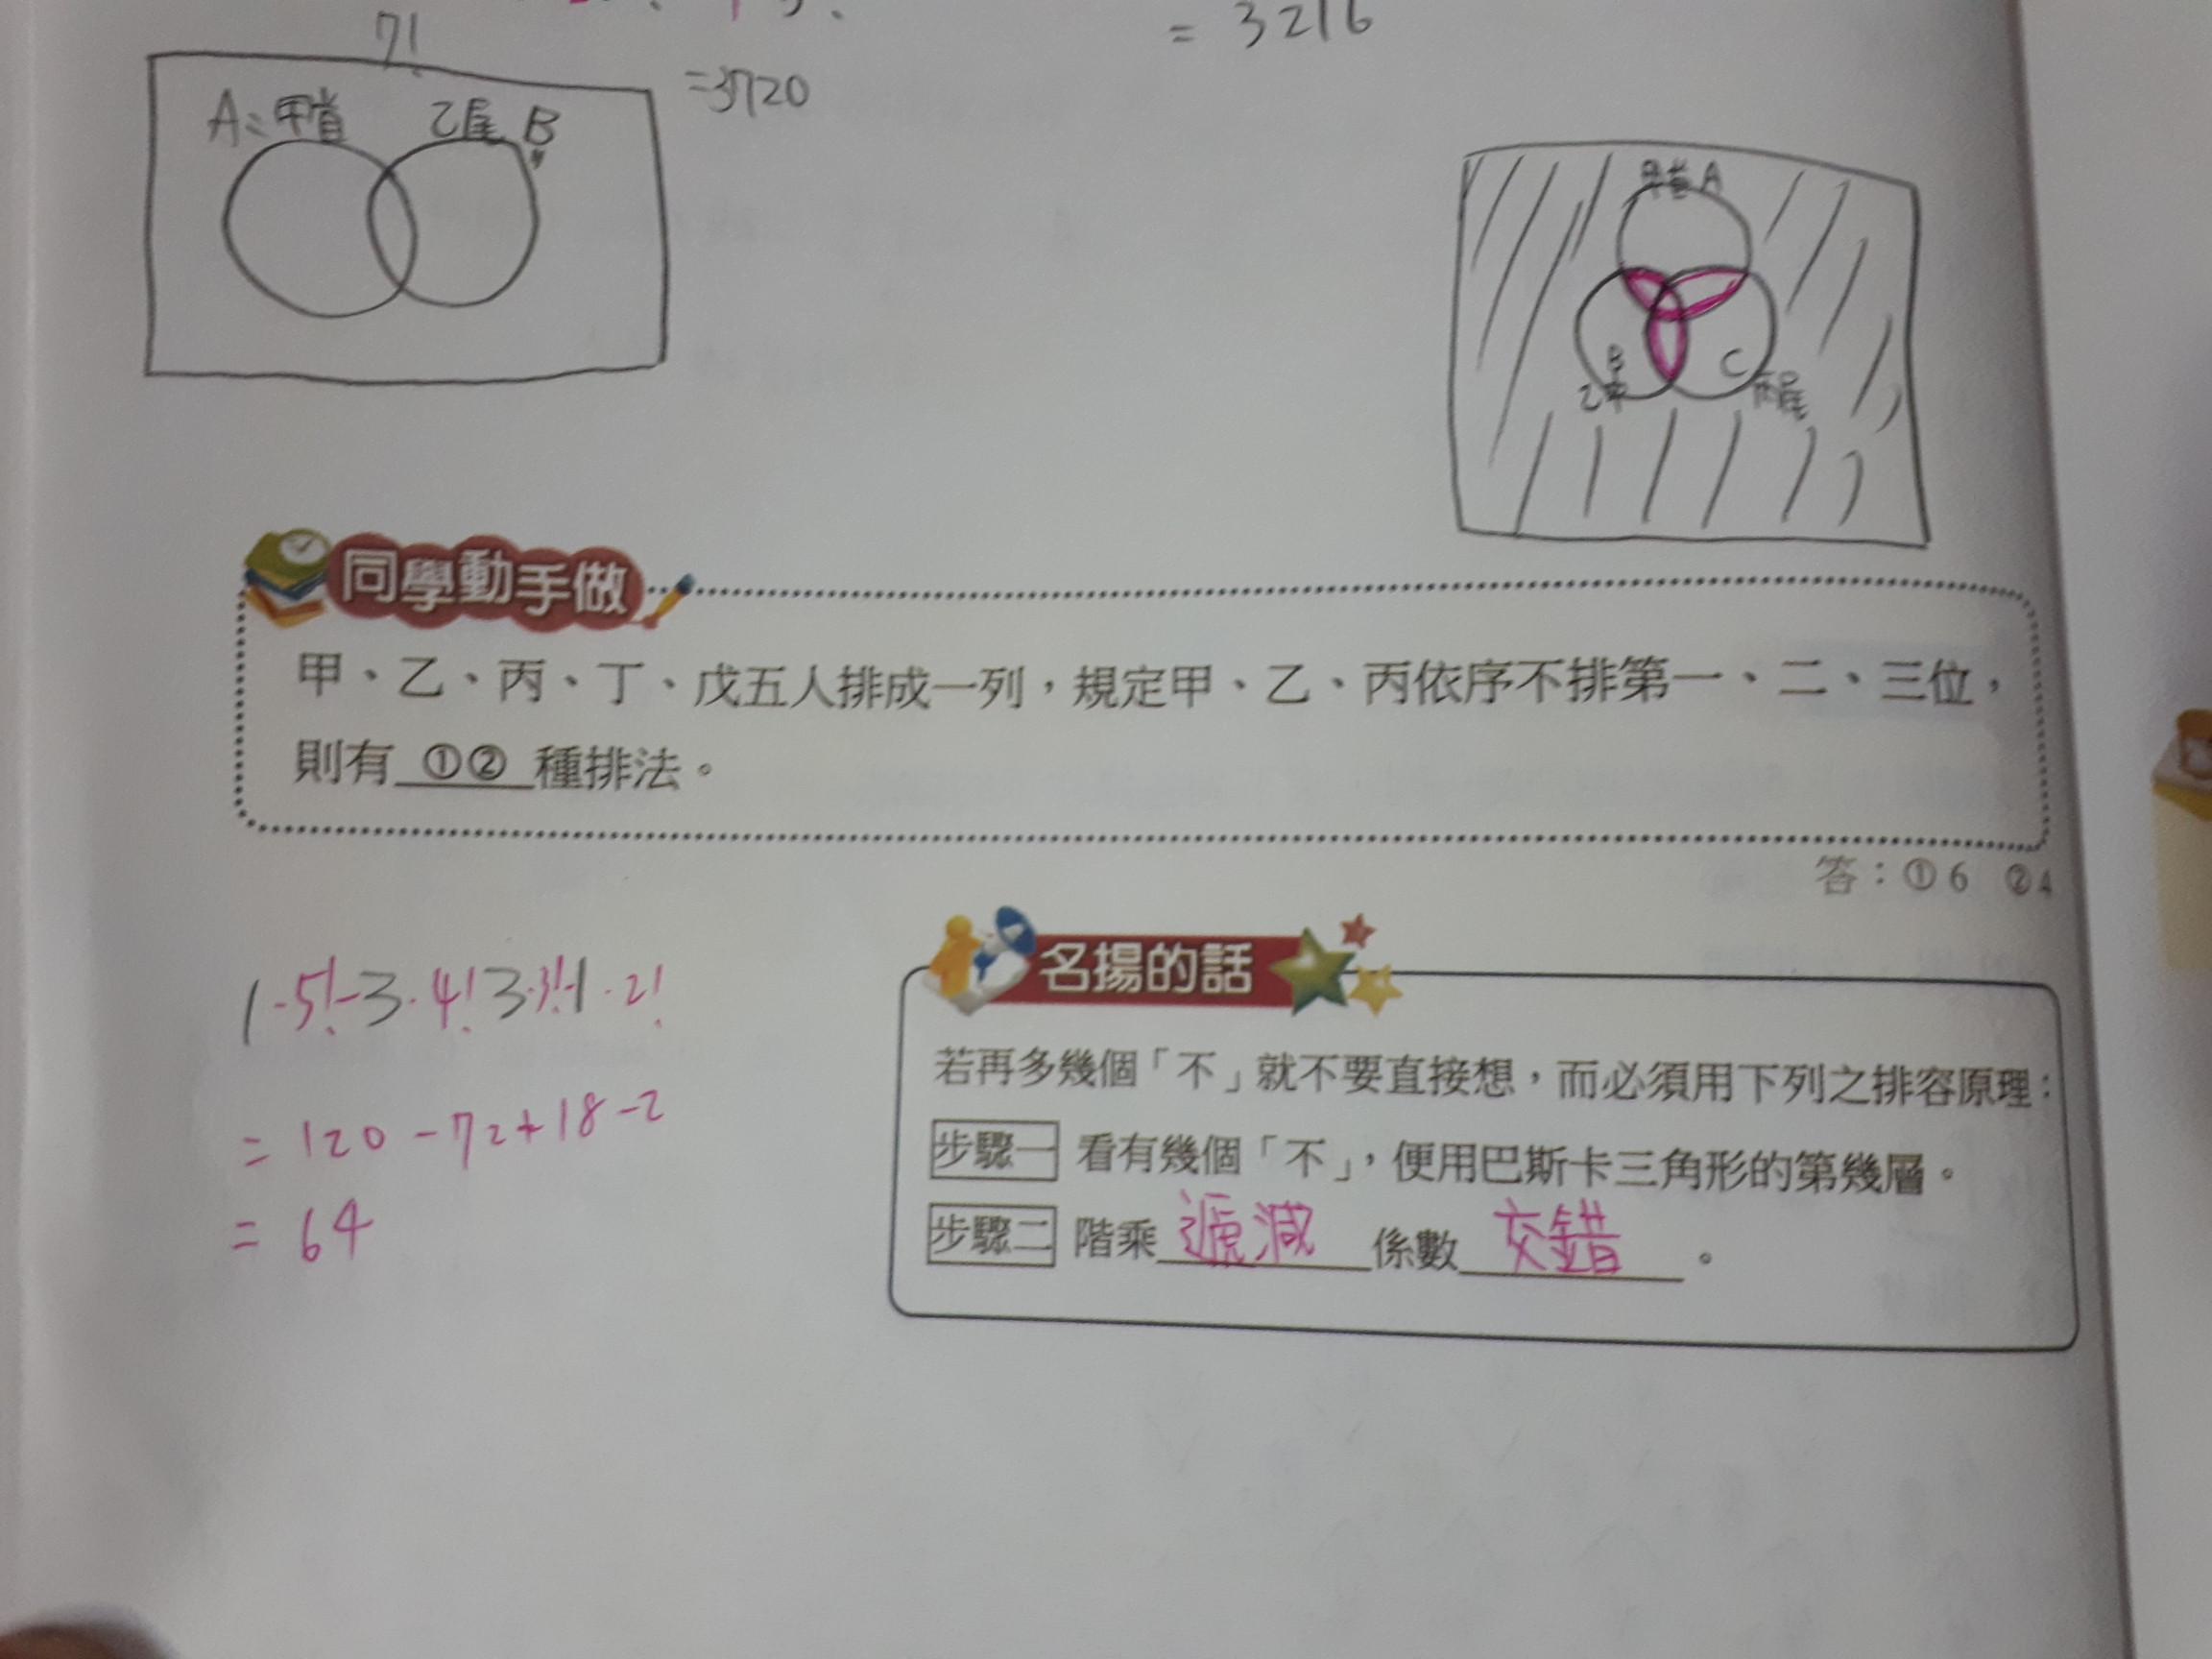 7!
= 3216
=3720
A:甲首 乙尾 B
甲首 A
B
乙中
C
丙尾
同學動手做
甲、乙、丙、丁、戊五人排成一列，規定甲、乙、丙依序不排第一、二、三位，
則有 ①② 種排法。
答：① 6 ② 4
1·5!-3·4!3·3!-1·2!
= 120-72+18-2
= 64
名揚的話
若再多幾個「不」就不要直接想，而必須用下列之排容原理：
步驟一 看有幾個「不」，便用巴斯卡三角形的第幾層。
步驟二 階乘 遞減 係數 交錯 。